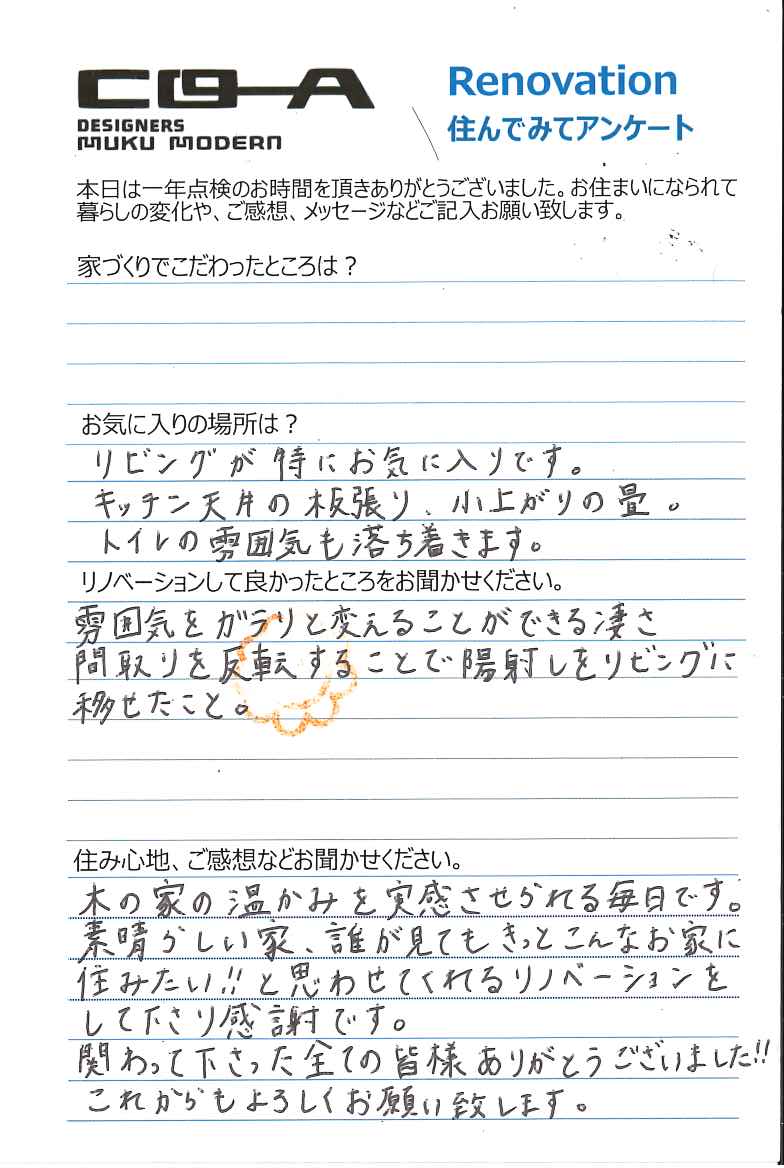 DESIGNERS
MUKU MODERN
Renovation
住んでみてアンケート
本日は一年点検のお時間を頂きありがとうございました。お住まいになられて
暮らしの変化や、ご感想、メッセージなどご記入お願い致します。
家づくりでこだわったところは？
お気に入りの場所は？
リビングが特にお気に入りです。
キッチン天井の板張り、小上がりの畳。
トイレの雰囲気も落ち着きます。
リノベーションして良かったところをお聞かせください。
雰囲気をガラリと変えることができる凄さ
間取りを反転することで陽射しをリビングに
移せたこと。
住み心地、ご感想などお聞かせください。
木の家の温かみを実感させられる毎日です。
素晴らしい家、誰が見てもきっとこんなお家に
住みたい!!と思わせてくれるリノベーションを
して下さり感謝です。
関わって下さった全ての皆様ありがとうございました!!
これからもよろしくお願い致します。